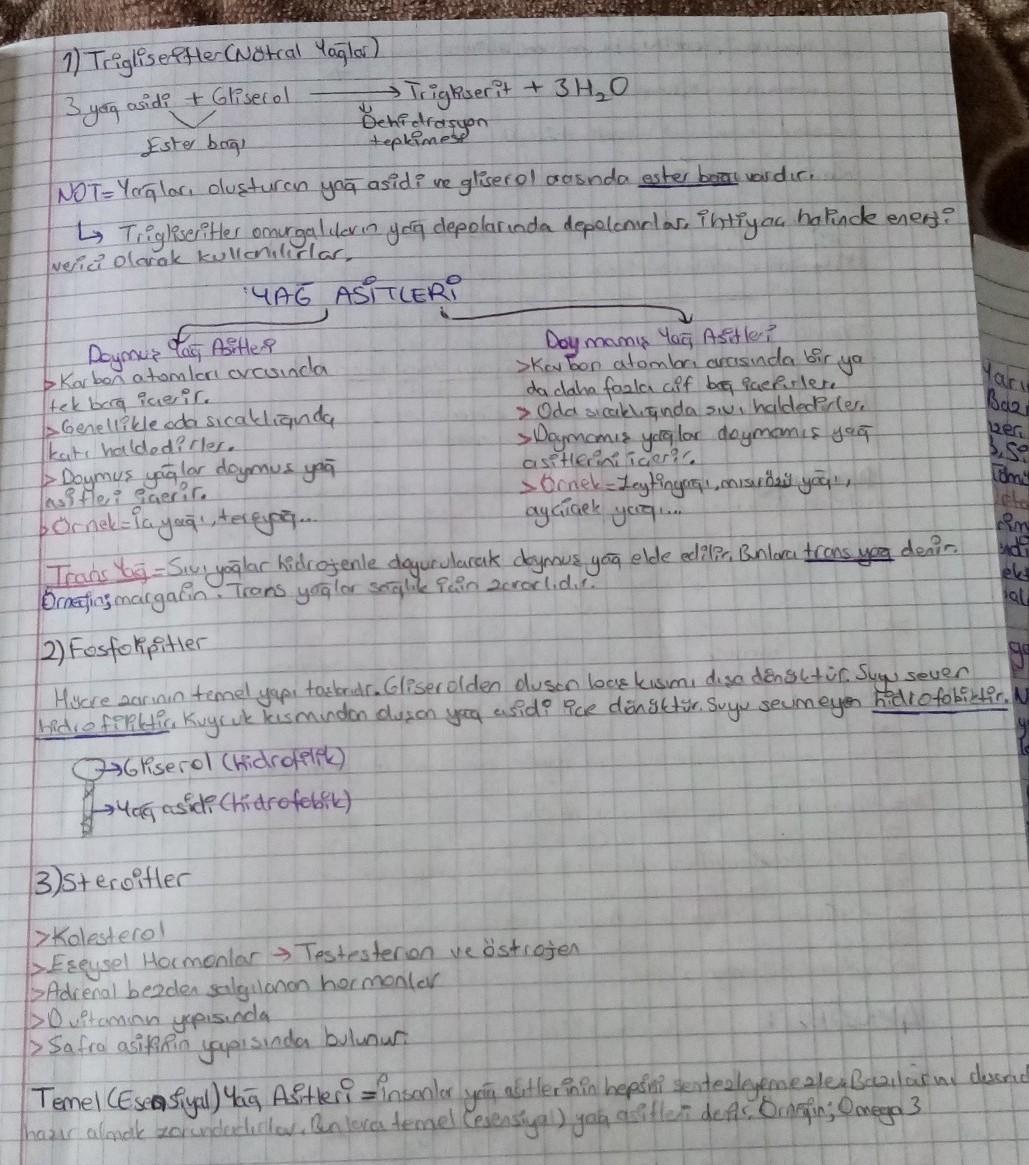 1) Trigliseritler (Nötral Yağlar)
3 yağ asidi + Gliserol → Trigliserit + 3H₂O
Ester bağı
Dehidrasyon
tepkimesi
NOT= Yağları oluşturan yağ asidi ve gliserol arasında ester bağı vardır.
↳ Trigliseritler omurgalıların yağ depolarında depolanırlar, ihtiyaç halinde enerji
verici olarak kullanılırlar.
YAĞ ASİTLERİ
Doymuş Yağ Asitleri
> Karbon atomları arasında
tek bağ içerir.
> Genellikle oda sıcaklığında
katı haldedirler.
> Doymuş yağlar doymuş yağ
asitleri içerir.
> Örnek= İç yağı, tereyağ...
Doymamış Yağ Asitleri
> Karbon atomları arasında bir ya
da daha fazla çift bağ içerirler.
> Oda sıcaklığında sıvı haldedirler.
> Doymamış yağlar doymamış yağ
asitlerini içerir.
> Örnek= Zeytinyağı, mısırözü yağı,
ayçiçek yağı...
Trans Yağ= Sıvı yağlar hidrojenle doyurularak doymuş yağ elde edilir. Bunlara trans yağ denir.
Örneğin; margarin. Trans yağlar sağlık için zararlıdır.
2) Fosfolipitler
Hücre zarının temel yapı taşlarıdır. Gliserolden oluşan baş kısmı dışa dönüktür. Suyu seven
hidrofiliktir. Kuyruk kısmından oluşan yağ asidi içe dönüktür. Suyu sevmeyen hidrofobiktir.
→ Gliserol (hidrofilik)
→ Yağ asidi (hidrofobik)
3) Steroitler
> Kolesterol
> Eşeysel Hormonlar → Testesteron ve östrojen
> Adrenal bezden salgılanan hormonlar
> D vitaminin yapısında
> Safra asitinin yapısında bulunur.
Temel (Esensiyal) Yağ Asitleri = İnsanlar yağ asitlerinin hepsini sentezleyemezler. Bazılarını dışarıd
hazır almak zorundadırlar. Bunlara temel (esensiyal) yağ asitleri denir. Örneğin; Omega 3